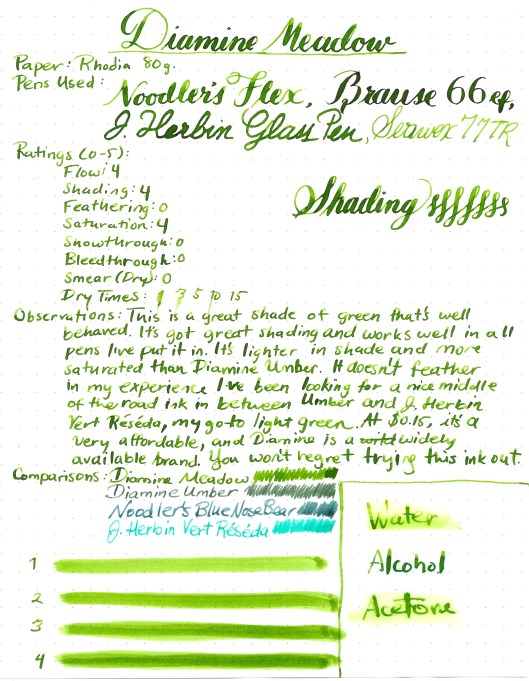 Diamine Meadow
Paper: Rhodia 80g.
Pens Used: Noodler's Flex, Brause 66 ef,
J. Herbin Glass Pen, Serwex 77TR
Ratings (0-5):
Flow: 4
Shading: 4
Feathering: 0
Saturation: 4
Showthrough: 0
Bleedthrough: 0
Smear (Dry): 0
Dry Times: 1 3 5 10 15
Shading
Observations: This is a great shade of green that's well
behaved. It's got great shading and works well in all
pens I've put it in. It's lighter in shade and more
saturated than Diamine Umber. It doesn't feather
in my experience I've been looking for a nice middle
of the road ink in between Umber and J. Herbin
Vert Réséda, my go to light green. At $0.15, it's a
very affordable, and Diamine is a world widely
available brand. You won't regret trying this ink out.
Comparisons: Diamine Meadow
Diamine Umber
Noodler's Blue Nose Bear
J. Herbin Vert Réséda
Water
Alcohol
Acetone
1
2
3
4